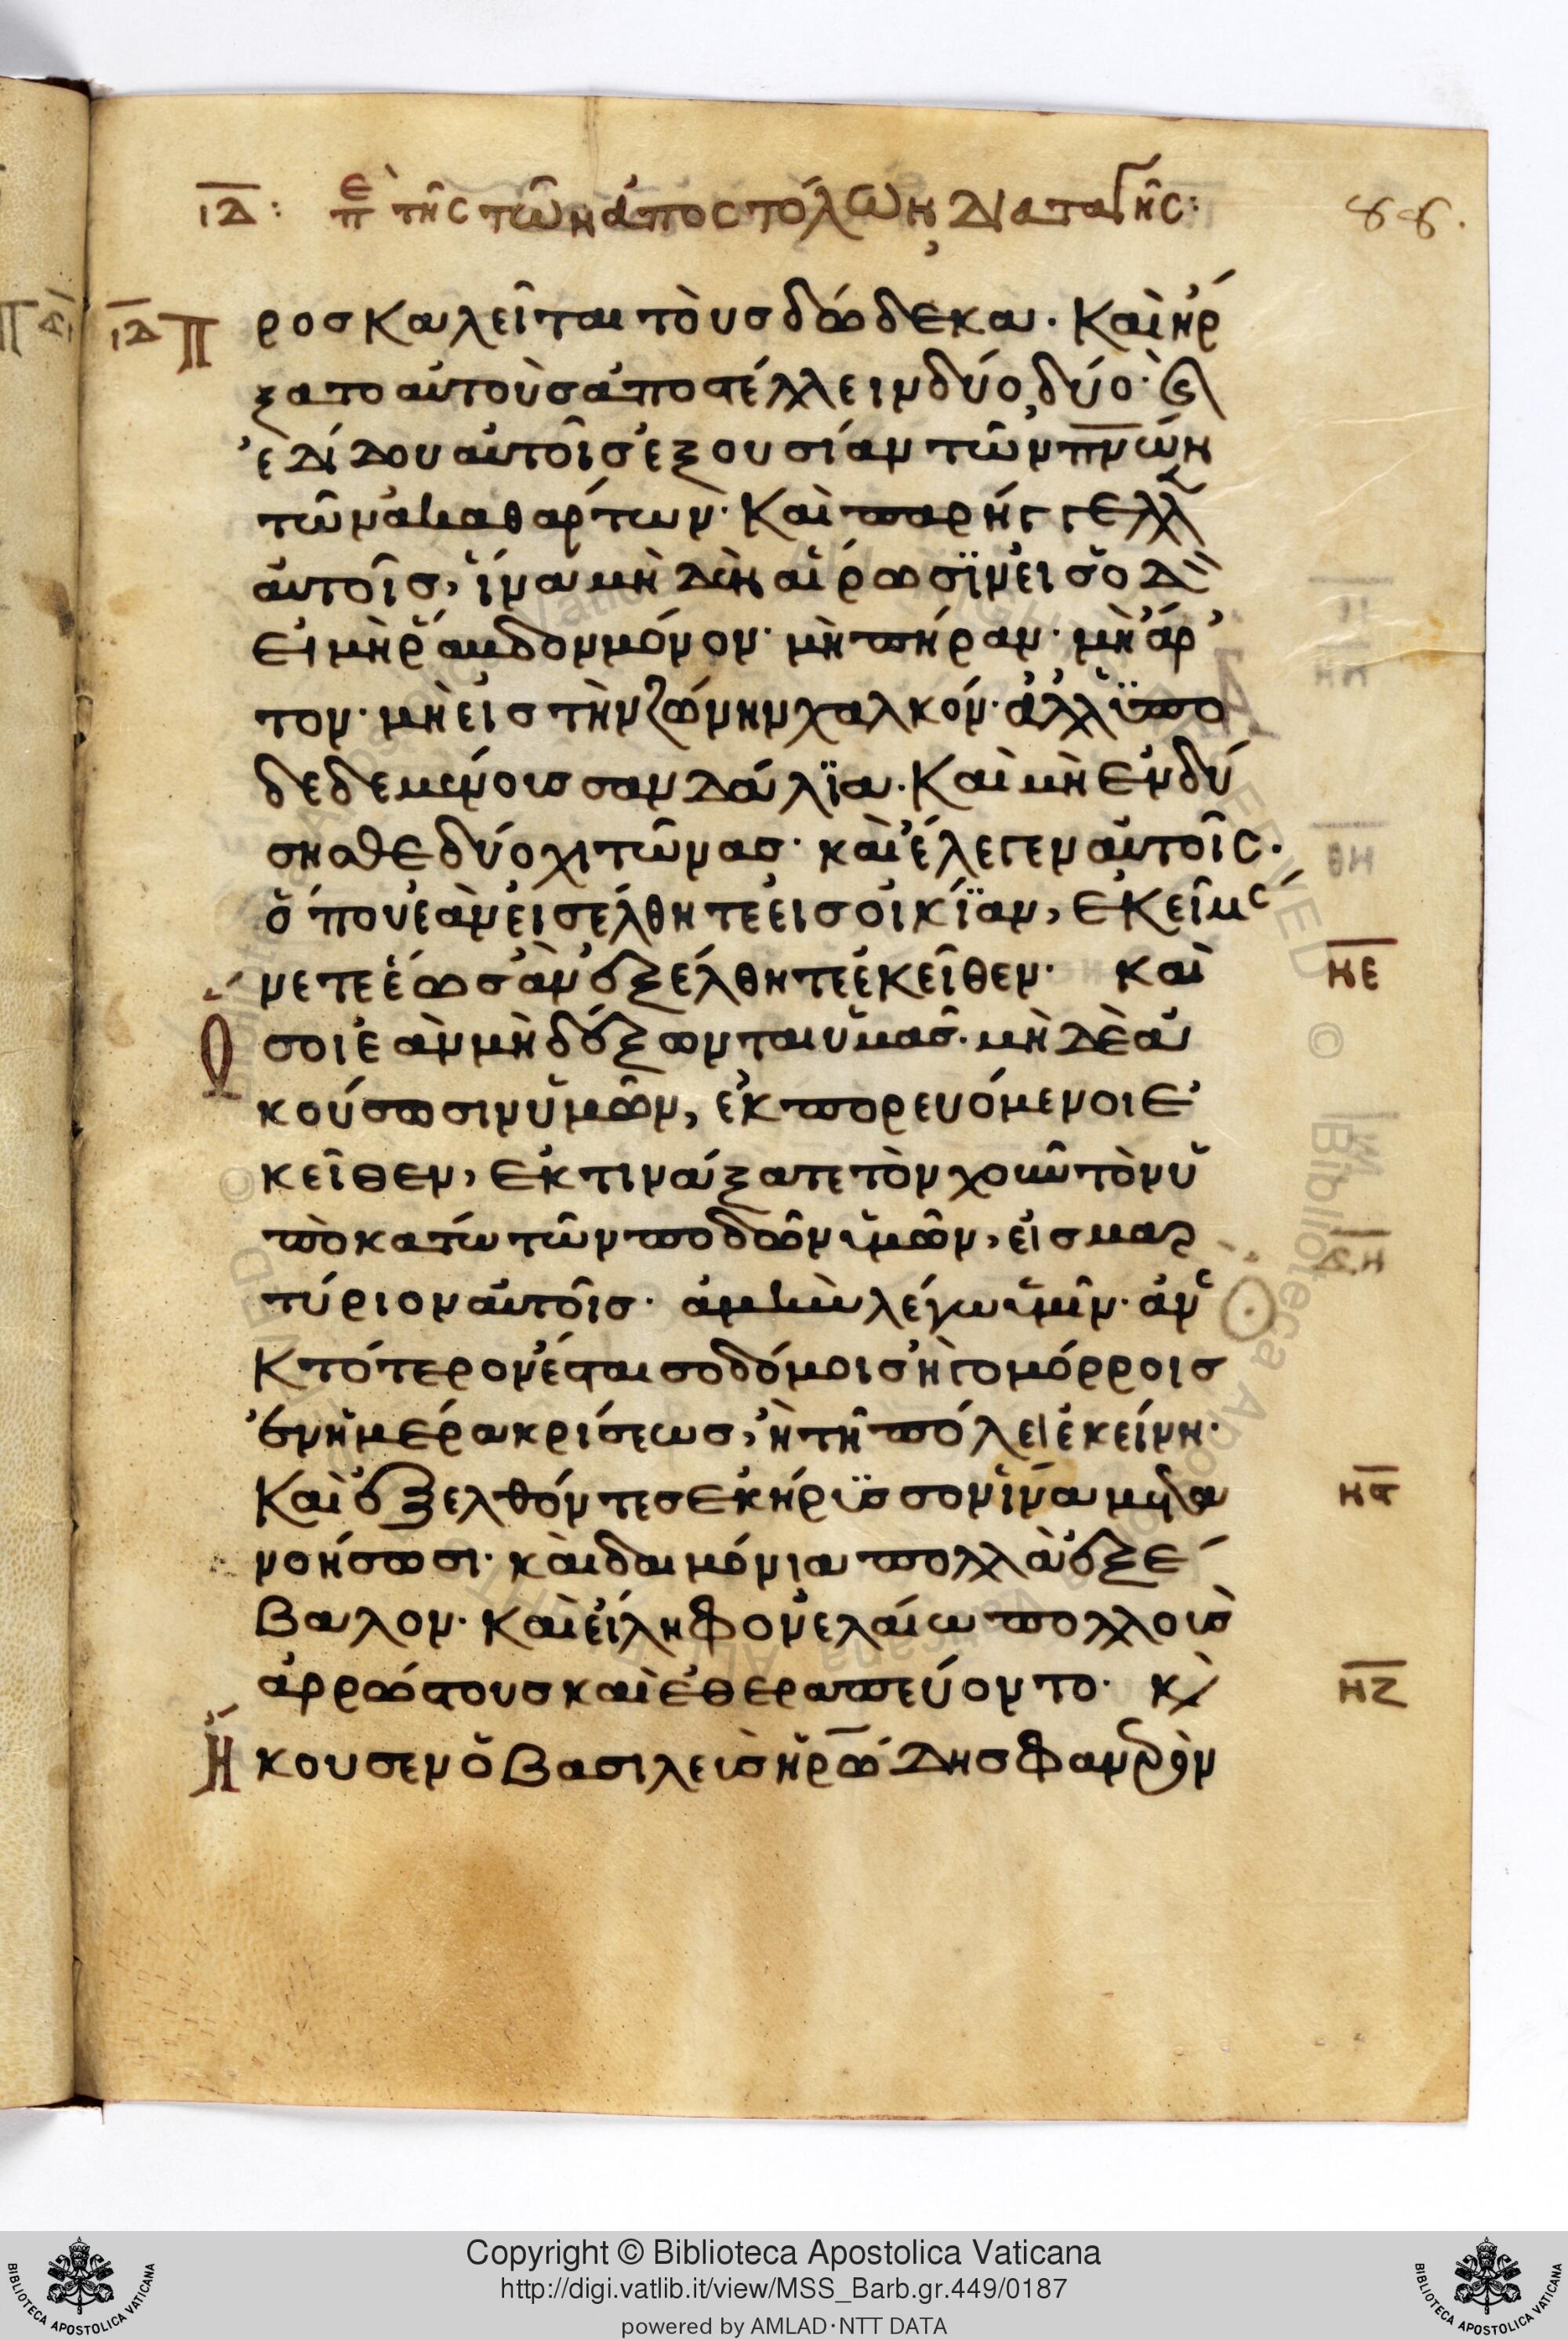 ιδ: πε τῆς τῶν ἀποστόλων διαταγῆς: 88.
ιδ Προσκαλεῖται τοὺς δώδεκα. Καὶ ἤρ
ξατο αὐτοὺς ἀποστέλλειν δύο δύο· καὶ
ἐδίδου αὐτοῖς ἐξουσίαν τῶν πνων
τῶν ἀκαθάρτων· Καὶ παρήγγελλ
αὐτοῖς, ἵνα μηδὲν αἴρωσϊν εἰς ὁδὸ
εἰ μὴ ῥάυδον μόνον· μὴ πήραν· μὴ ἄρ
τον· μὴ εἰς τὴν ζώνην χαλκόν· ἀλλ ὑπο
δεδεμένοις σανδάλϊα. Καὶ μὴ ἐνδύ
σησθε δύο χιτῶνας· καὶ ἔλεγεν αὐτοῖς.
ὅπου ἐὰν εἰσέλθητε εἰς οἰκίϊαν, ἐκεῖ μέ
νετε ἕως ἂν ἐξέλθητε ἐκεῖθεν· καὶ κε
Ὅσοι ἐὰν μὴ δέξωνται ὑμᾶς. μὴ δὲ ἀ
κούσωσιν ὑμῶν, ἐκπορευόμενοι ἐ
κεῖθεν, ἐκτινάξατε τὸν χοῦν τὸν ὑ
πὸ κατώ τῶν ποδῶν ὑμῶν, εἰς μαρ
τύριον αὐτοῖς· ἀμὴν λέγω ὑμῖν· ἀνε
κτότερον ἔσται σοδόμοις ἢ γομόρροις
ἐν ἡμέρα κρίσεως, ἢ τῆ πόλει ἐκείνη.
Καὶ ἐξελθόντες ἐκήρϋσσον ἵνα μετα νϛ
νοήσωσι· καὶ δαιμόνια πολλὰ ἐξέ
βαλον. Καὶ εἴληφον ἐλαίω πολλοὺς
ἀρρώστους καὶ ἐθεραπεύοντο· κὶ νζ
Ἤκουσεν ὁ βασιλεὺς ἡρώδης φανερὸν
Copyright © Biblioteca Apostolica Vaticana
http://digi.vatlib.it/view/MSS_Barb.gr.449/0187
powered by AMLAD·NTT DATA
BIBLIOTECA APOSTOLICA VATICANA
BIBLIOTECA APOSTOLICA VATICANA